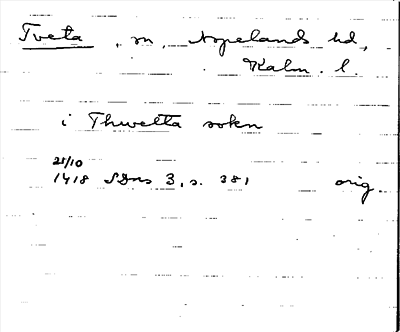 Tveta, sn, Aspelands hd,
Kalm. l.
i Thwetta sokn
21/10
1418 SDns 3, s. 381 orig.